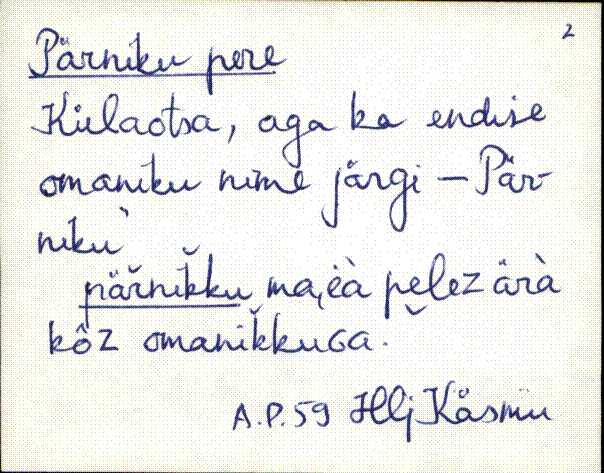 2
Pärniku pere
Külaotsa, aga ka endise
omaniku nime järgi – Pär-
niku
pär̆nik̆ku ma,eà pe̮lez ärà
kô̭z omanik̆kuɢa.
A.P. 59 Hlj Käsmu